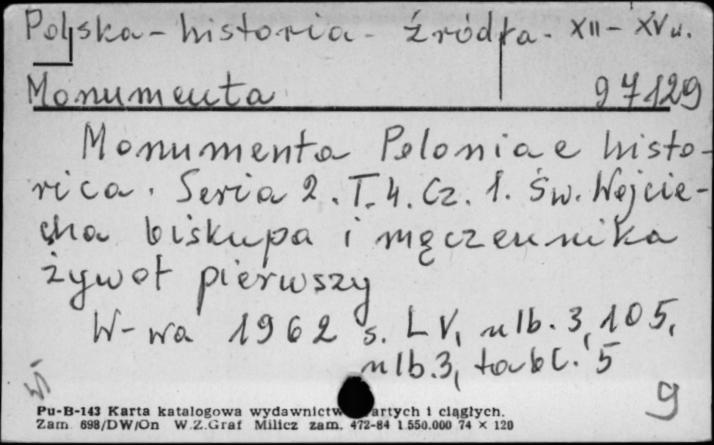 Polska - historia - źródła - XII - XV w.
Monumenta 97129
Monumenta Poloniae histo-
rica. Seria 2. T. 4. Cz. 1. Św. Wojcie-
cha biskupa i męczennika
żywot pierwszy
W-wa 1962 s. LV, nlb. 3, 105,
nlb. 3, tabl. 5
9
Pu-B-143 Karta katalogowa wydawnictw artych i ciągłych.
Zam. 698/DW/On W.Z.Graf Milicz zam. 472-84 1.550.000 74 × 120